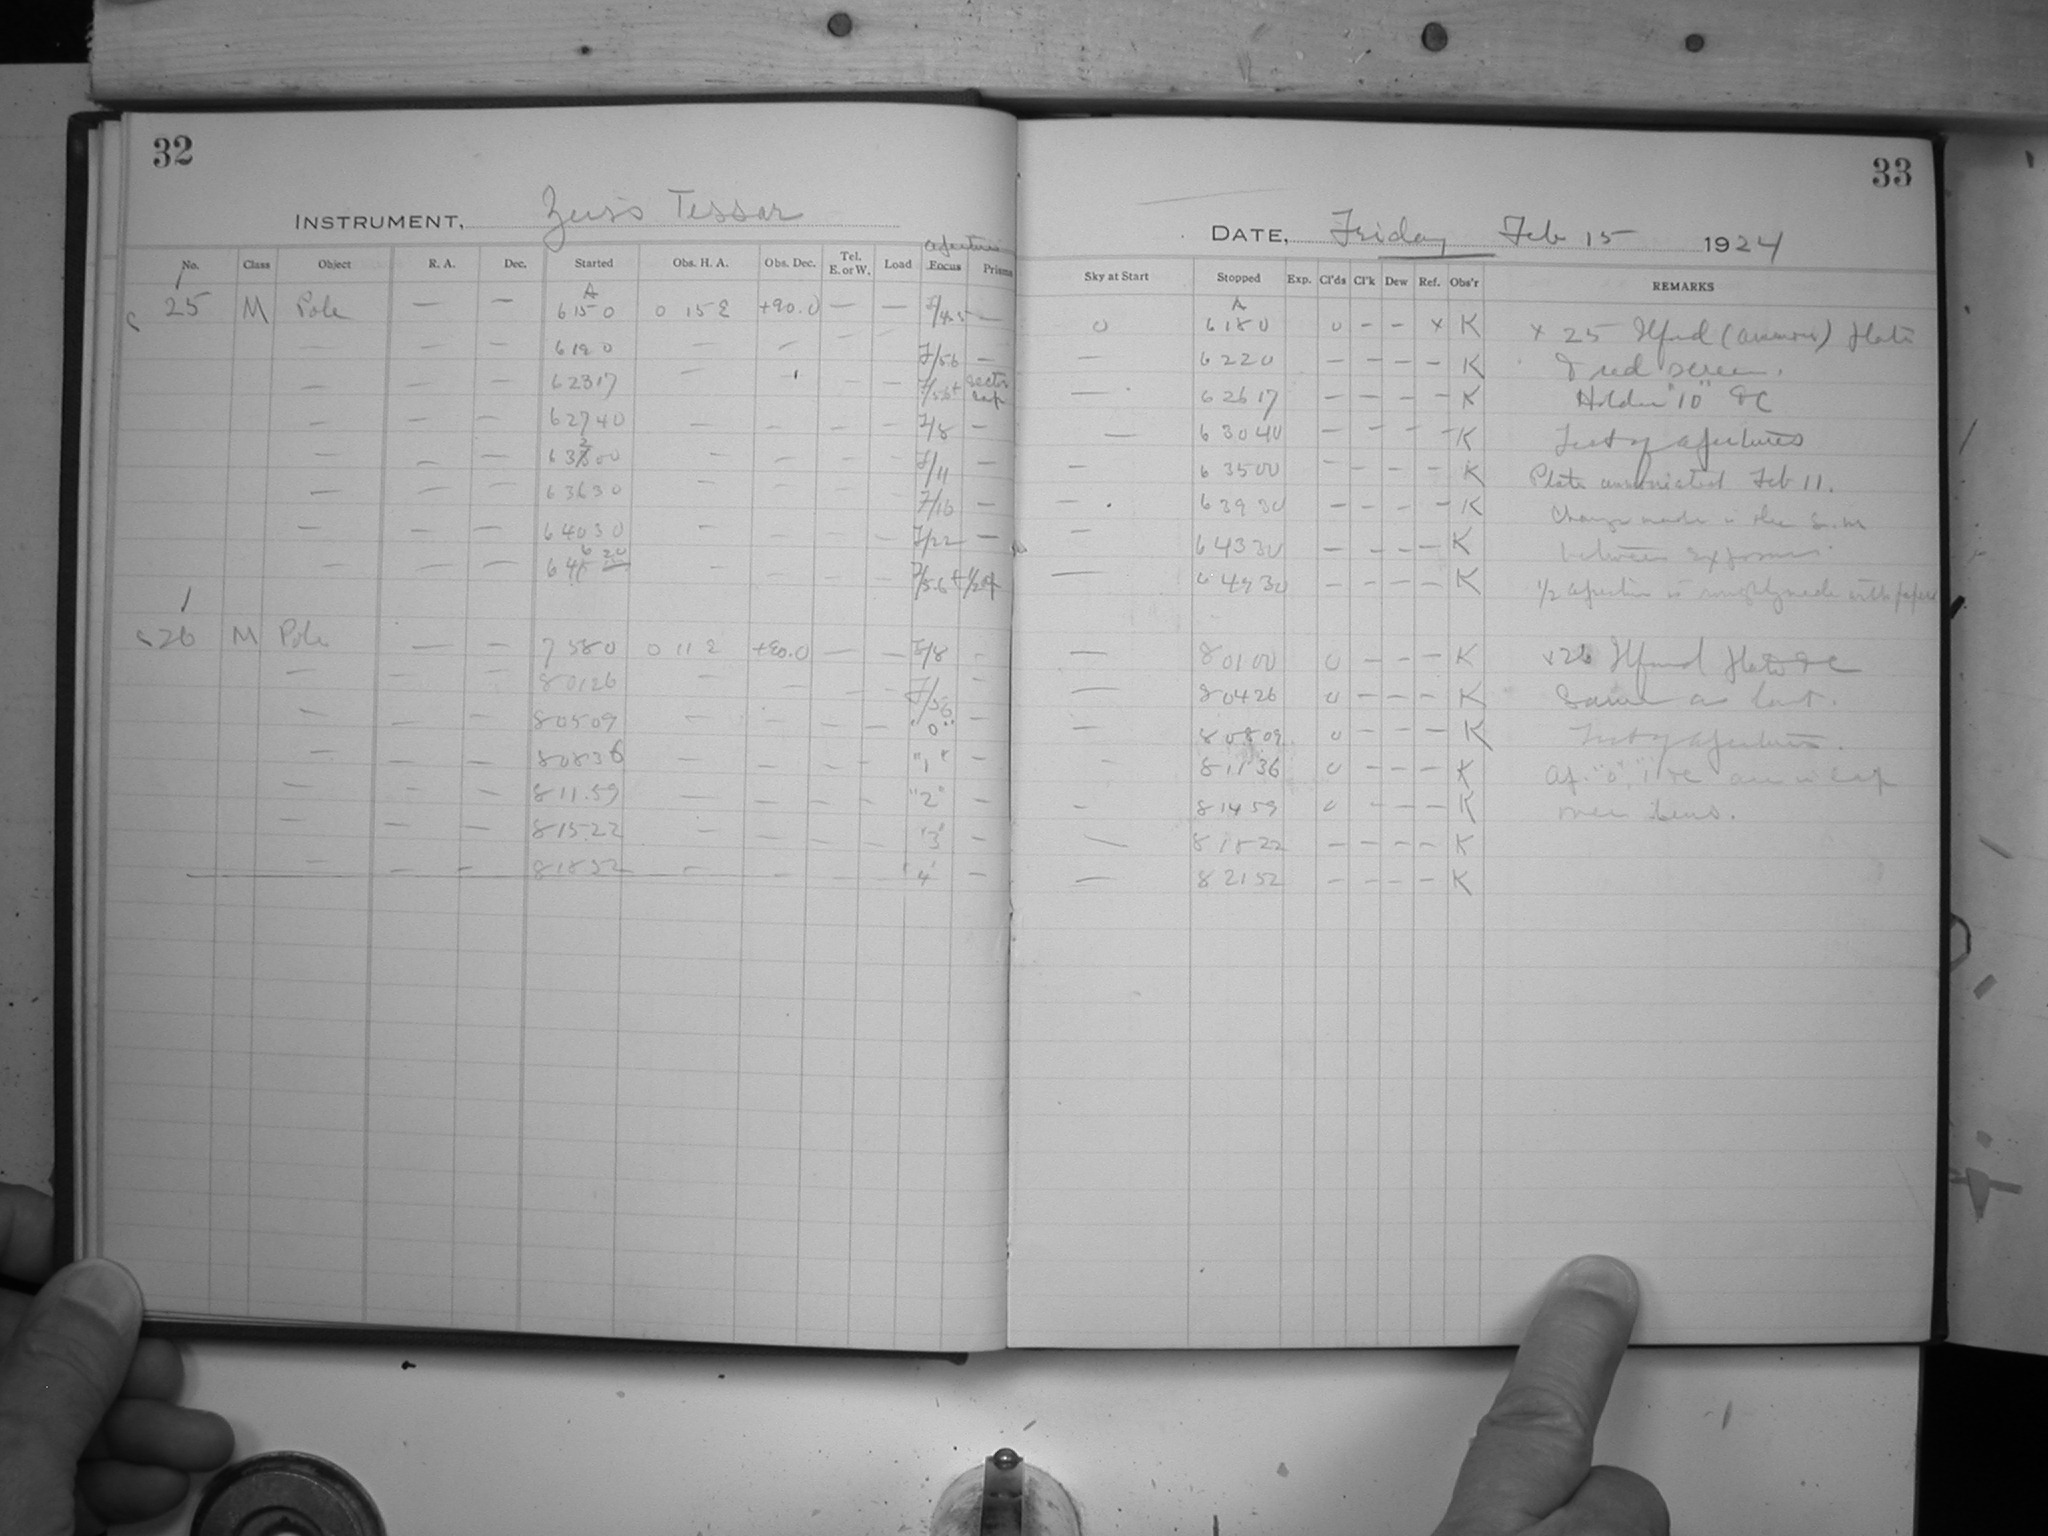 32
INSTRUMENT, Zeiss Tessar
aperture
No. Class Object R. A. Dec. Started Obs. H. A. Obs. Dec. Tel. E. or W. Load Focus Prisms
25 M Pole — — A 6 15 0 0 15 E +90.0 — — F/4.5 —
— — — 6 19 0 — — — — F/5.6 —
— — — 6 23 17 — — — F/5.6+ sector cap
— — — 6 27 40 — — — — F/8 —
— — — 6 32 00 — — — — F/11 —
— — — 6 36 30 — — — — F/16 —
— — — 6 40 30 — — — F/22 —
— — — 6 46 20 — — — — F/5.6 + 1/2 ap
26 M Pole — — 7 58 0 0 11 E +90.0 — — F/8 -
— — — 8 01 26 — — — — F/5.6 -
— — — 8 05 09 — — — — "0" —
— — — 8 08 36 — — — — "1" —
— — — 8 11.59 — — — — "2" —
— — — 8 15 22 — — — — "3" —
— — — 8 18 52 — — — "4" —
33
DATE, Friday Feb 15 1924
Sky at Start Stopped Exp. Cl'ds Cl'k Dew Ref. Obs'r REMARKS
0 A 6 18 0 0 - - x K x 25 Ilford Plate
— 6 22 0 — — — — K & red screen.
— 6 26 17 — — — — K Holder "10" &C
— 6 30 40 — — — — K Test of apertures
— 6 35 00 — — — — K Plate Feb 11.
— 6 39 30 — — — — K Change made in the
— 6 43 30 — — — — K between exposures
— 6 49 30 — — — — K 1/2 aperture is roughly made with paper
— 8 01 00 0 - - - K x26 Ilford Plate &C
— 8 04 26 0 - - - K Same as last.
— 8 08 09 0 - - - K Test of apertures.
- 8 11 36 0 - - - K Ap. "0", "1" &c are in cap
- 8 14 59 0 - - - K over lens.
— 8 18 22 — — — — K
— 8 21 52 — — — — K